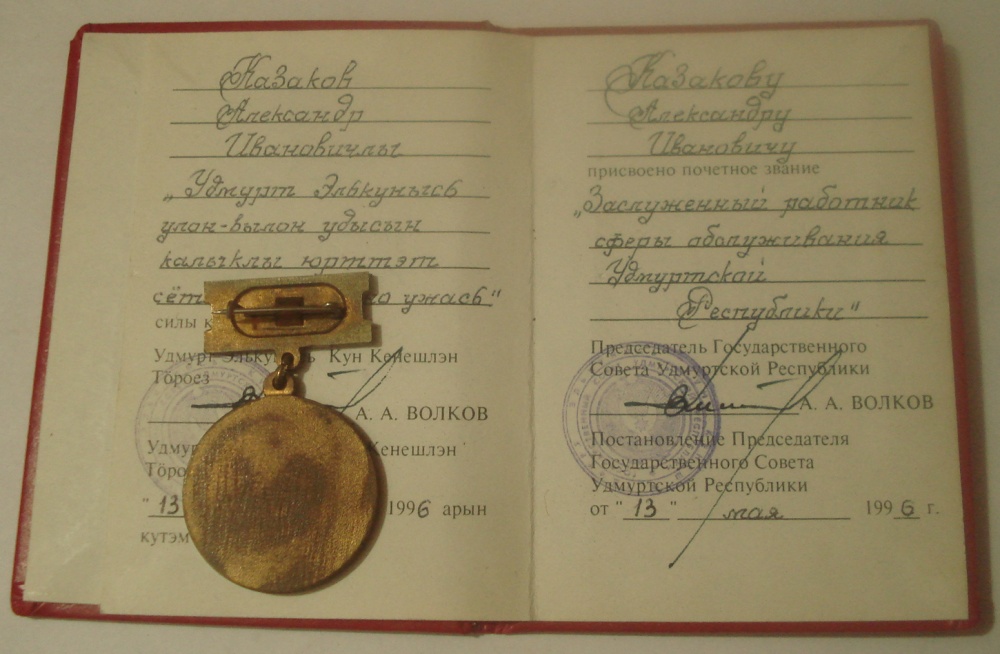 Казаков
Александр
Ивановичлы
„Удмурт Элькунысь
улон-вылон удысын
калыклы юрттэт
сёт ужась"
силы
Удмурт Кун Кенешлэн
Тӧроез
А. А. ВОЛКОВ
Кенешлэн
"13 1996 арын
Казакову
Александру
Ивановичу
присвоено почетное звание
„Заслуженный работник
сферы обслуживания
Удмуртской
Республики"
Председатель Государственного
Совета Удмуртской Республики
А. А. ВОЛКОВ
Постановление Председателя
Государственного Совета
Удмуртской Республики
от "13" мая 1996 г.